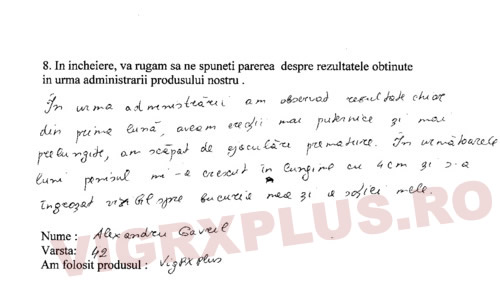 8. In incheiere, va rugam sa ne spuneti parerea despre rezultatele obtinute
in urma administrarii produsului nostru .
În urma administrării am observat rezultate chiar
din prima lună, aveam erecții mai puternice și mai
prelungite, am scăpat de ejaculări premature. În următoarele
luni penisul mi-a crescut în lungime cu 4cm și s-a
îngroșat spre bucuria mea și a soției mele.
Nume : Alexandru Gavril
Varsta: 42
Am folosit produsul : VigRX Plus
VIGRXPLUS.RO